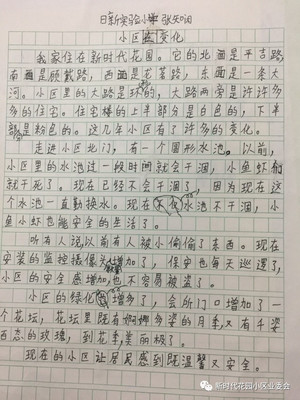 日新实验小学 张知润
小区的变化
我家住在新时代花园。它的北面是平吉路,
南面是顾戴路,西面是花茗路,东面是一条大
河。小区里的大路是环的,大路两旁是许许多
多的住宅。住宅楼的上半部分是白色的,下半
部是粉色的。这几年小区有了许多的变化。
走进小区北门,有一个圆形水池。以前,
小区里的水池过一段时间就会干涸,小鱼虾们
就干死了。现在已经不会干涸了,因为现在这
个水池一直勤换水。现在不仅水池不干涸,小
鱼小虾也能安全的生活了。
听有人说以前有人被小偷偷了东西。现在
安装的监控摄像头增加了,保安也每天巡逻了,
小区的安全感增加,也不容易被盗了。
小区的绿化增多了,会所门口增加了一
个花坛,花坛里既有婀娜多姿的月季,又有千姿
百态的玫瑰,到花季,美丽极了。
现在的小区让居民感到既温馨又安全。
新时代花园小区业委会